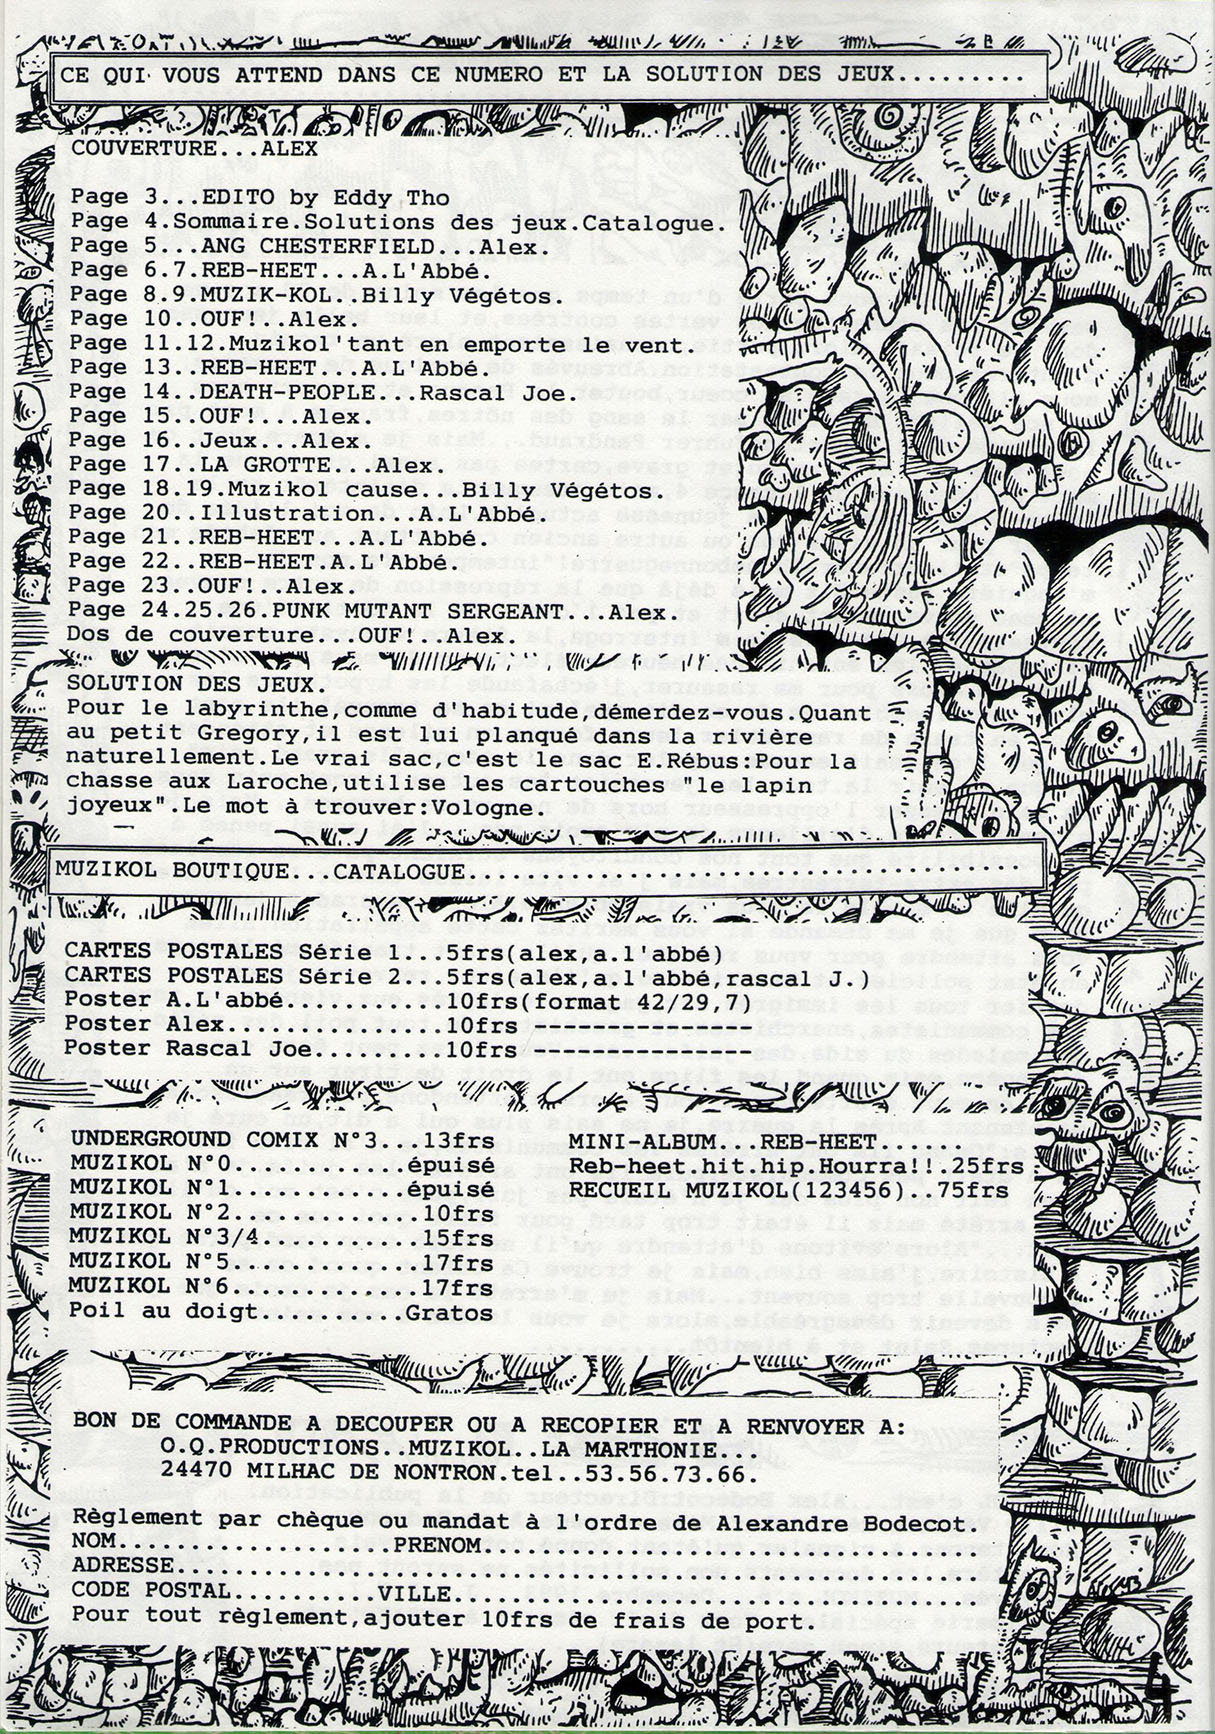 CE QUI VOUS ATTEND DANS CE NUMERO ET LA SOLUTION DES JEUX.........
COUVERTURE...ALEX
Page 3...EDITO by Eddy Tho
Page 4.Sommaire.Solutions des jeux.Catalogue.
Page 5...ANG CHESTERFIELD...Alex.
Page 6.7.REB-HEET...A.L'Abbé.
Page 8.9.MUZIK-KOL..Billy Végétos.
Page 10..OUF!..Alex.
Page 11.12.Muzikol'tant en emporte le vent.
Page 13..REB-HEET...A.L'Abbé.
Page 14..DEATH-PEOPLE...Rascal Joe.
Page 15..OUF!...Alex.
Page 16..Jeux...Alex.
Page 17..LA GROTTE...Alex.
Page 18.19.Muzikol cause...Billy Végétos.
Page 20..Illustration...A.L'Abbé.
Page 21..REB-HEET...A.L'Abbé.
Page 22..REB-HEET.A.L'Abbé.
Page 23..OUF!..Alex.
Page 24.25.26.PUNK MUTANT SERGEANT...Alex.
Dos de couverture...OUF!..Alex.
SOLUTION DES JEUX.
Pour le labyrinthe,comme d'habitude,démerdez-vous.Quant
au petit Gregory,il est lui planqué dans la rivière
naturellement.Le vrai sac,c'est le sac E.Rébus:Pour la
chasse aux Laroche,utilise les cartouches "le lapin
joyeux".Le mot à trouver:Vologne.
MUZIKOL BOUTIQUE...CATALOGUE......................................
CARTES POSTALES Série 1...5frs(alex,a.l'abbé)
CARTES POSTALES Série 2...5frs(alex,a.l'abbé,rascal J.)
Poster A.L'abbé...........10frs(format 42/29,7)
Poster Alex...............10frs----------------
Poster Rascal Joe.........10frs
UNDERGROUND COMIX N°3...13frs
MUZIKOL N°0............épuisé
MUZIKOL N°1............épuisé
MUZIKOL N°2.............10frs
MUZIKOL N°3/4...........15frs
MUZIKOL N°5.............17frs
MUZIKOL N°6.............17frs
Poil au doigt..........Gratos
MINI-ALBUM...REB-HEET......
Reb-heet.hit.hip.Hourra!!.25frs
RECUEIL MUZIKOL(123456)..75frs
BON DE COMMANDE A DECOUPER OU A RECOPIER ET A RENVOYER A:
O.Q.PRODUCTIONS..MUZIKOL..LA MARTHONIE...
24470 MILHAC DE NONTRON.tel..53.56.73.66.
Règlement par chèque ou mandat à l'ordre de Alexandre Bodecot.
NOM...................PRENOM..................................
ADRESSE.......................................................
CODE POSTAL..........VILLE....................................
Pour tout règlement,ajouter 10frs de frais de port.
Alex 93